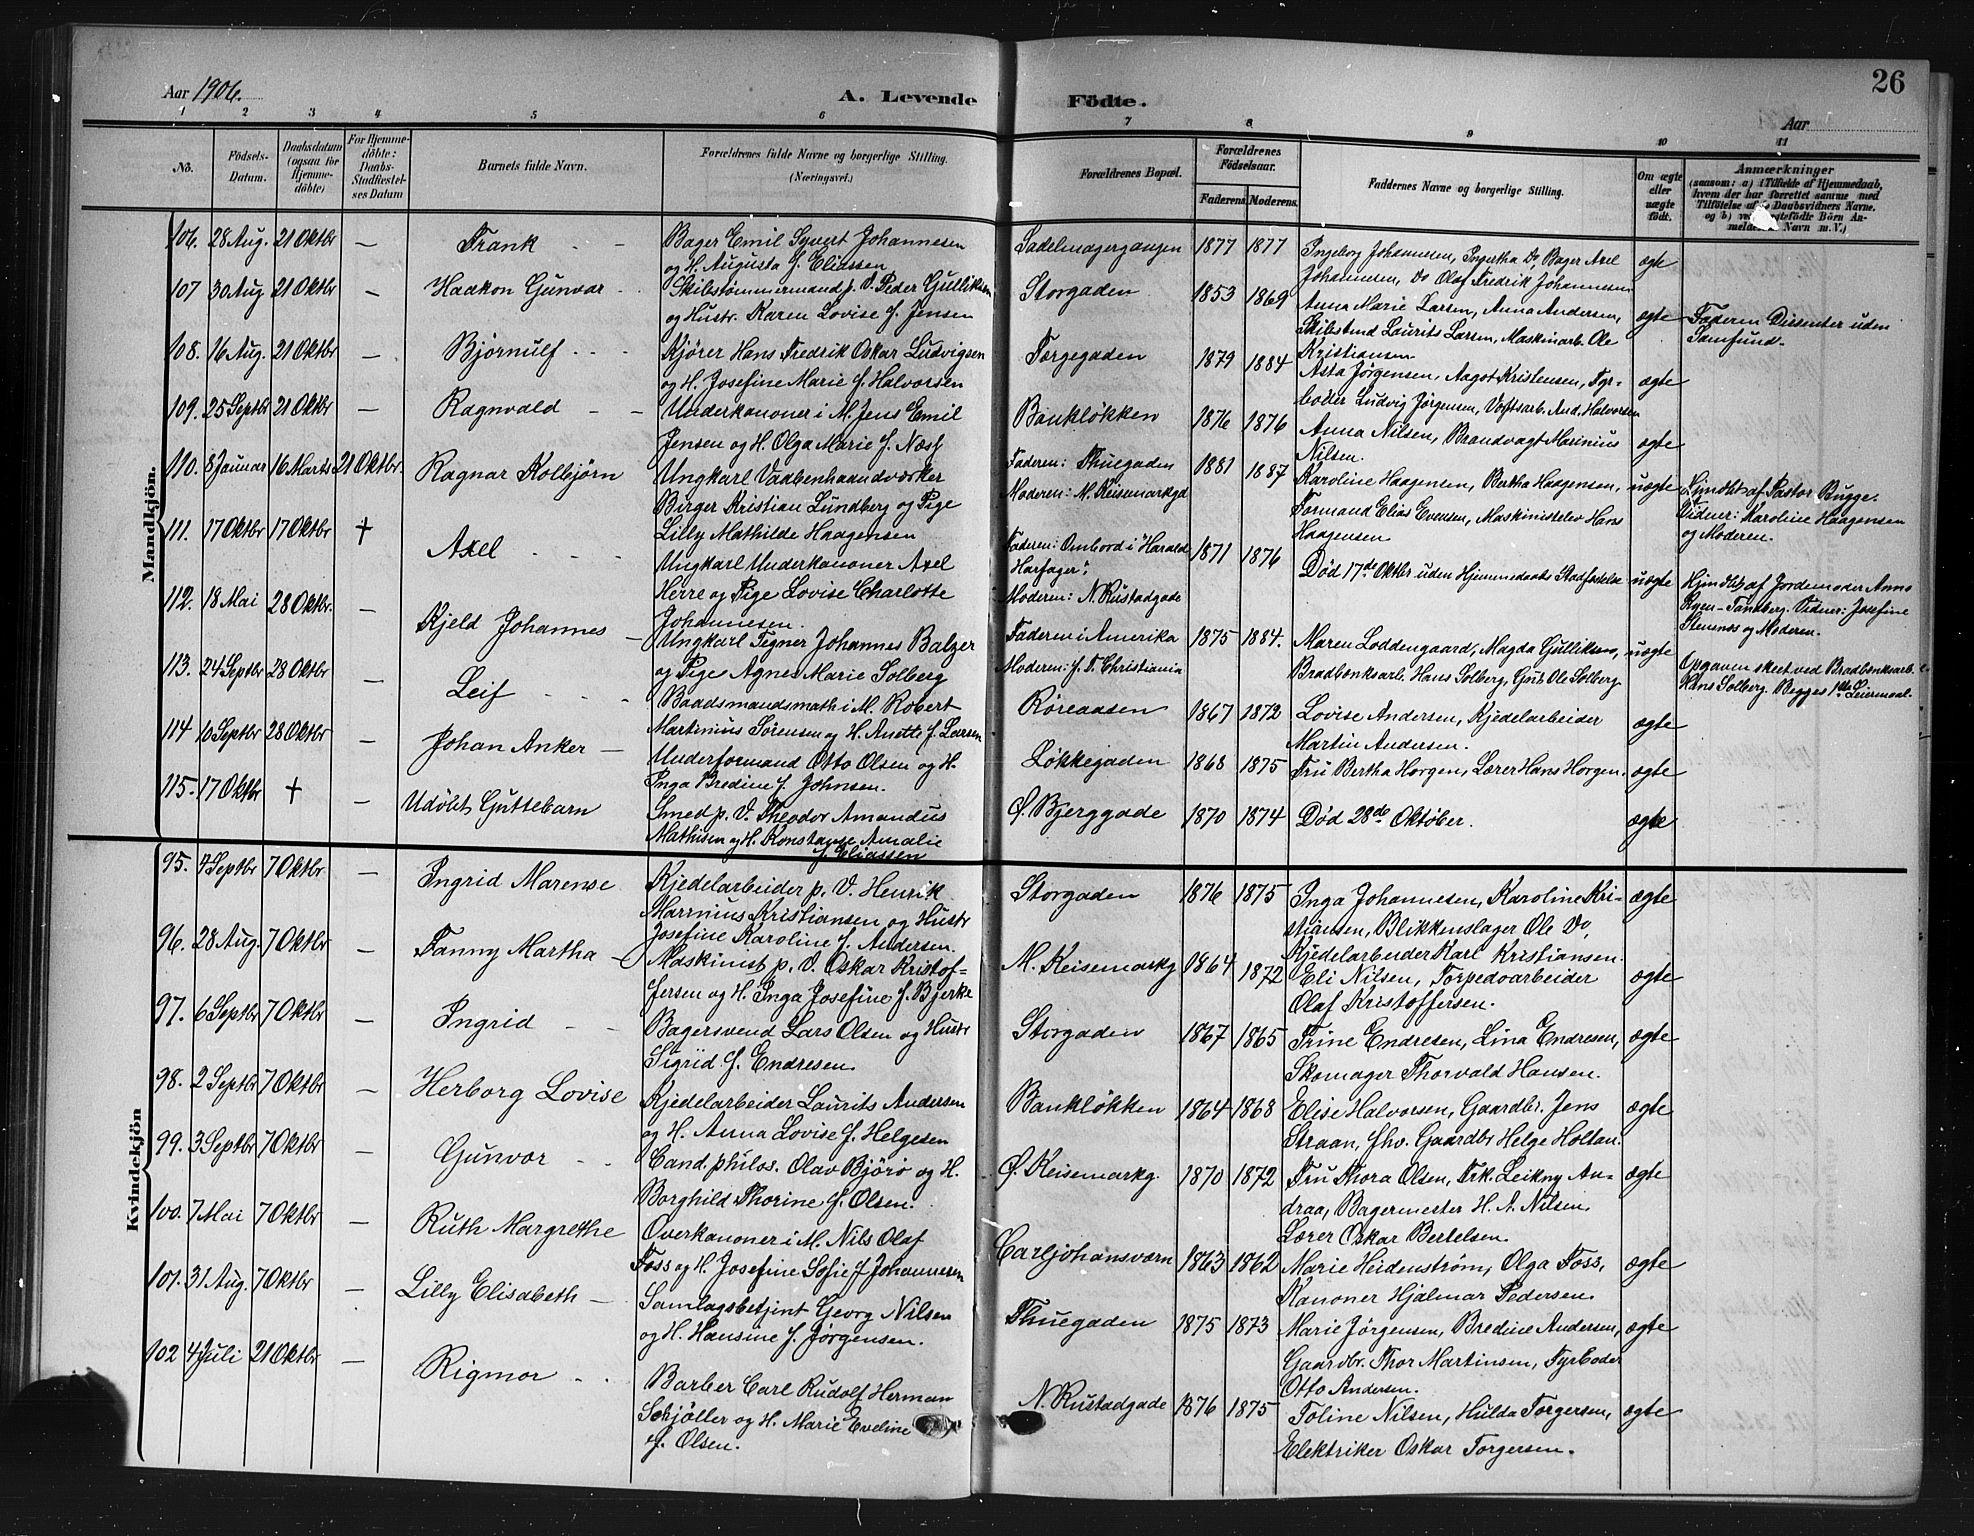 26
Aar 1906.
A. Levende Födte.
Aar
1 2 3 4 5 6 7 8 9 10 11
No.
Födsels-Datum.
Daabsdatum (ogsaa for Hjemmedöbte)
For Hjemmedöbte: Daabs-Stadfestelses Datum
Barnets fulde Navn.
Forældrenes fulde Navne og borgerlige Stilling.
(Næringsvei.)
Forældrenes Bopæl.
Forældrenes Födselsaar.
Faderens Moderens.
Faddernes Navne og borgerlige Stilling.
Om ægte eller uægte födt.
Anmærkninger
(saasom: a) i Tilfælde af Hjemmedaab, hvem der har forrettet samme med Tilföielse af Daabsvidners Navne, og b) ved uægtefödte Börn Anmelderens Navn m. V.)
Mandkjön.
106. 28 Aug. 21 Oktbr — Frank
Bager Emil Syvert Johannesen
og H. Augusta f. Eliassen
Sadelmagergangen 1877 1877
Ingeborg Johannesen, Ingertha Do, Bager Axel
Johannesen, Do Olaf Fredrik Johannesen
ægte
107 30 Aug 21 Oktbr — Haakon Gunvar
Skibstømmermand p. V. Peder Gulliksen
og Hustr. Karen Lovise f. Jensen
Storgaden 1853 1869
Anna Marie Larsen, Anna Andersen,
Skibstmd Laurits Larsen, Maskinarb. Ole
Kristiansen
ægte
Faderen Dissenter uden
Samfund.
108. 16 Aug. 21 Oktbr — Bjørnulf
Kjører Hans Fredrik Oskar Ludvigsen
og H. Josefine Marie f. Halvorsen
Færgegaden 1879 1884
Asta Jørgensen, Aagot Kristensen, Fyr-
bøder Ludvig Jørgensen, Værftsarb. And. Halvorsen
ægte
109. 25 Septbr 21 Oktbr — Ragnvald
Underkanoner i M. Jens Emil
Jensen og H. Olga Marie f. Næss
Bankløkken 1876 1876
Anna Nilsen, Brandvagt Masinius
Nilsen.
ægte
110. 8 Januar 16 Marts 21 Oktbr. Ragnar Kolbjørn
Ungkarl Vaabenhaandværker
Birger Kristian Lundberg og Pige
Lilly Mathilde Haagensen
Faderen: Thuegaden
Moderen: M. Keisemarkgd
1881 1887
Karoline Haagensen, Bertha Haagensen,
Formand Elias Evensen, Maskinistelev Hans
Haagensen
uægte
Hjmdbt af Pastor Bugge.
Vidner: Karoline Haagensen
og Moderen.
111. 17 Oktbr 17 Oktbr † Axel
Ungkarl Underkanoner Axel
Herre og Pige Lovise Charlotte
Johannesen.
Faderen: Ombord i "Harald
Harfager".
Moderen: N. Rustadgade
1871 1876
Død 17de Oktbr uden Hjemmedaabs Stadfestelse
uægte
Hjmdbt af Jordemoder Anna
Ryen-Tandberg. Vidner: Josefine
Stemnos og Moderen.
112. 18 Mai 28 Oktbr — Kjeld Johannes
Ungkarl Tegner Johannes Balzer
og Pige Agnes Marie Solberg
Faderen i Amerika
Moderen: f. T. Christiania
1875 1884.
Maren Loddengaard, Magda Gulliksen,
Bradbenksarb. Hans Solberg, Gut Ole Solberg.
uægte
Opgaven skeet ved Bradbenksarb.
Hans Solberg. Begges 1ste Leiermaal.
113. 24 Septbr 28 Oktbr — Leif
Baadsmandsmath i M. Robert
Martinius Sørensen og H. Anette f. Larsen
Røreaasen 1867 1872
Lovise Andersen, Kjedelarbeider
Martin Andersen.
ægte
114 10 Septbr 28 Oktbr — Johan Anker
Underformand Otto Olsen og H.
Inga Bredine f. Johnsen.
Løkkegaden 1868 1875
Fru Bertha Horgen, Lærer Hans Horgen.
ægte
115. 17 Oktbr † — Udøbt Guttebarn
Smed p. V. Theodor Amandus
Mathisen og H. Konstanse Amalie
f. Eliassen
Ø. Bjerggade 1870 1874
Død 28de Oktober.
ægte
Kvindekjön
95. 4 Septbr 7 Oktbr — Ingrid Marense
Kjedelarbeider p. V. Henrik
Marinius Kristiansen og Hustr
Josefine Karoline f. Andersen.
Storgaden 1876 1875
Inga Johannesen, Karoline Kri-
stiansen, Blikkenslager Ole Do,
Kjedelarbeider Karl Kristiansen.
ægte
96. 28 Aug. 7 Oktbr — Fanny Martha
Maskinist p. V. Oskar Kristof-
fersen og H. Inga Josefine f. Bjerke
M. Keisemarkg 1864 1872
Eli Nilsen, Torpedoarbeider
Olaf Kristoffersen.
ægte
97. 6 Septbr 7 Oktbr — Ingrid
Bagersvend Lars Olsen og Hustr
Sigrid f. Endresen.
Storgaden 1867 1865
Trine Endresen, Lina Endresen,
Skomager Thorvald Hansen.
ægte
98. 2 Septbr 7 Oktbr — Herborg Lovise
Kjedelarbeider Laurits Andersen
og H. Anna Lovise f. Helgesen
Bankløkken 1864 1868
Elise Halvorsen, Gaardbr. Jens
Straan, fhv. Gaardbr Helge Holtan.
ægte
99. 3 Septbr 7 Oktbr — Gunvor
Cand. philos. Olav Bjørø og H.
Borghild Thorine f. Olsen.
Ø. Keisemarkg. 1870 1872
Fru Thora Olsen, Frk. Leikny An-
draa, Bagermester H. A. Nilsen.
Lærer Oskar Bertelsen.
ægte
100. 7 Mai 7 Oktbr — Ruth Margrethe
Overkanoner i M. Nils Olaf
Foss og H. Josefine Sofie f Johannesen
Carljohansværn 1863 1862
Marie Heidenstrøm, Olga Foss,
Kanoner Hjalmar Pedersen.
ægte
101. 31 Aug. 7 Oktbr — Lilly Elisabeth
Samlagsbetjent Georg Nilsen
og H. Hansine f. Jørgensen.
Thuegaden 1875 1873
Marie Jørgensen, Bredine Andersen,
Gaardbr. Thor Martinsen, Fyrbøder
Otto Andersen.
ægte
102 4 Juli 21 Oktbr — Rigmor
Barber Carl Rudolf Herman
Schjøller og H. Marie Eveline
f. Olsen.
N. Rustadgade 1876 1875
Toline Nilsen, Hulda Torgersen,
Elektriker Oskar Torgersen.
ægte